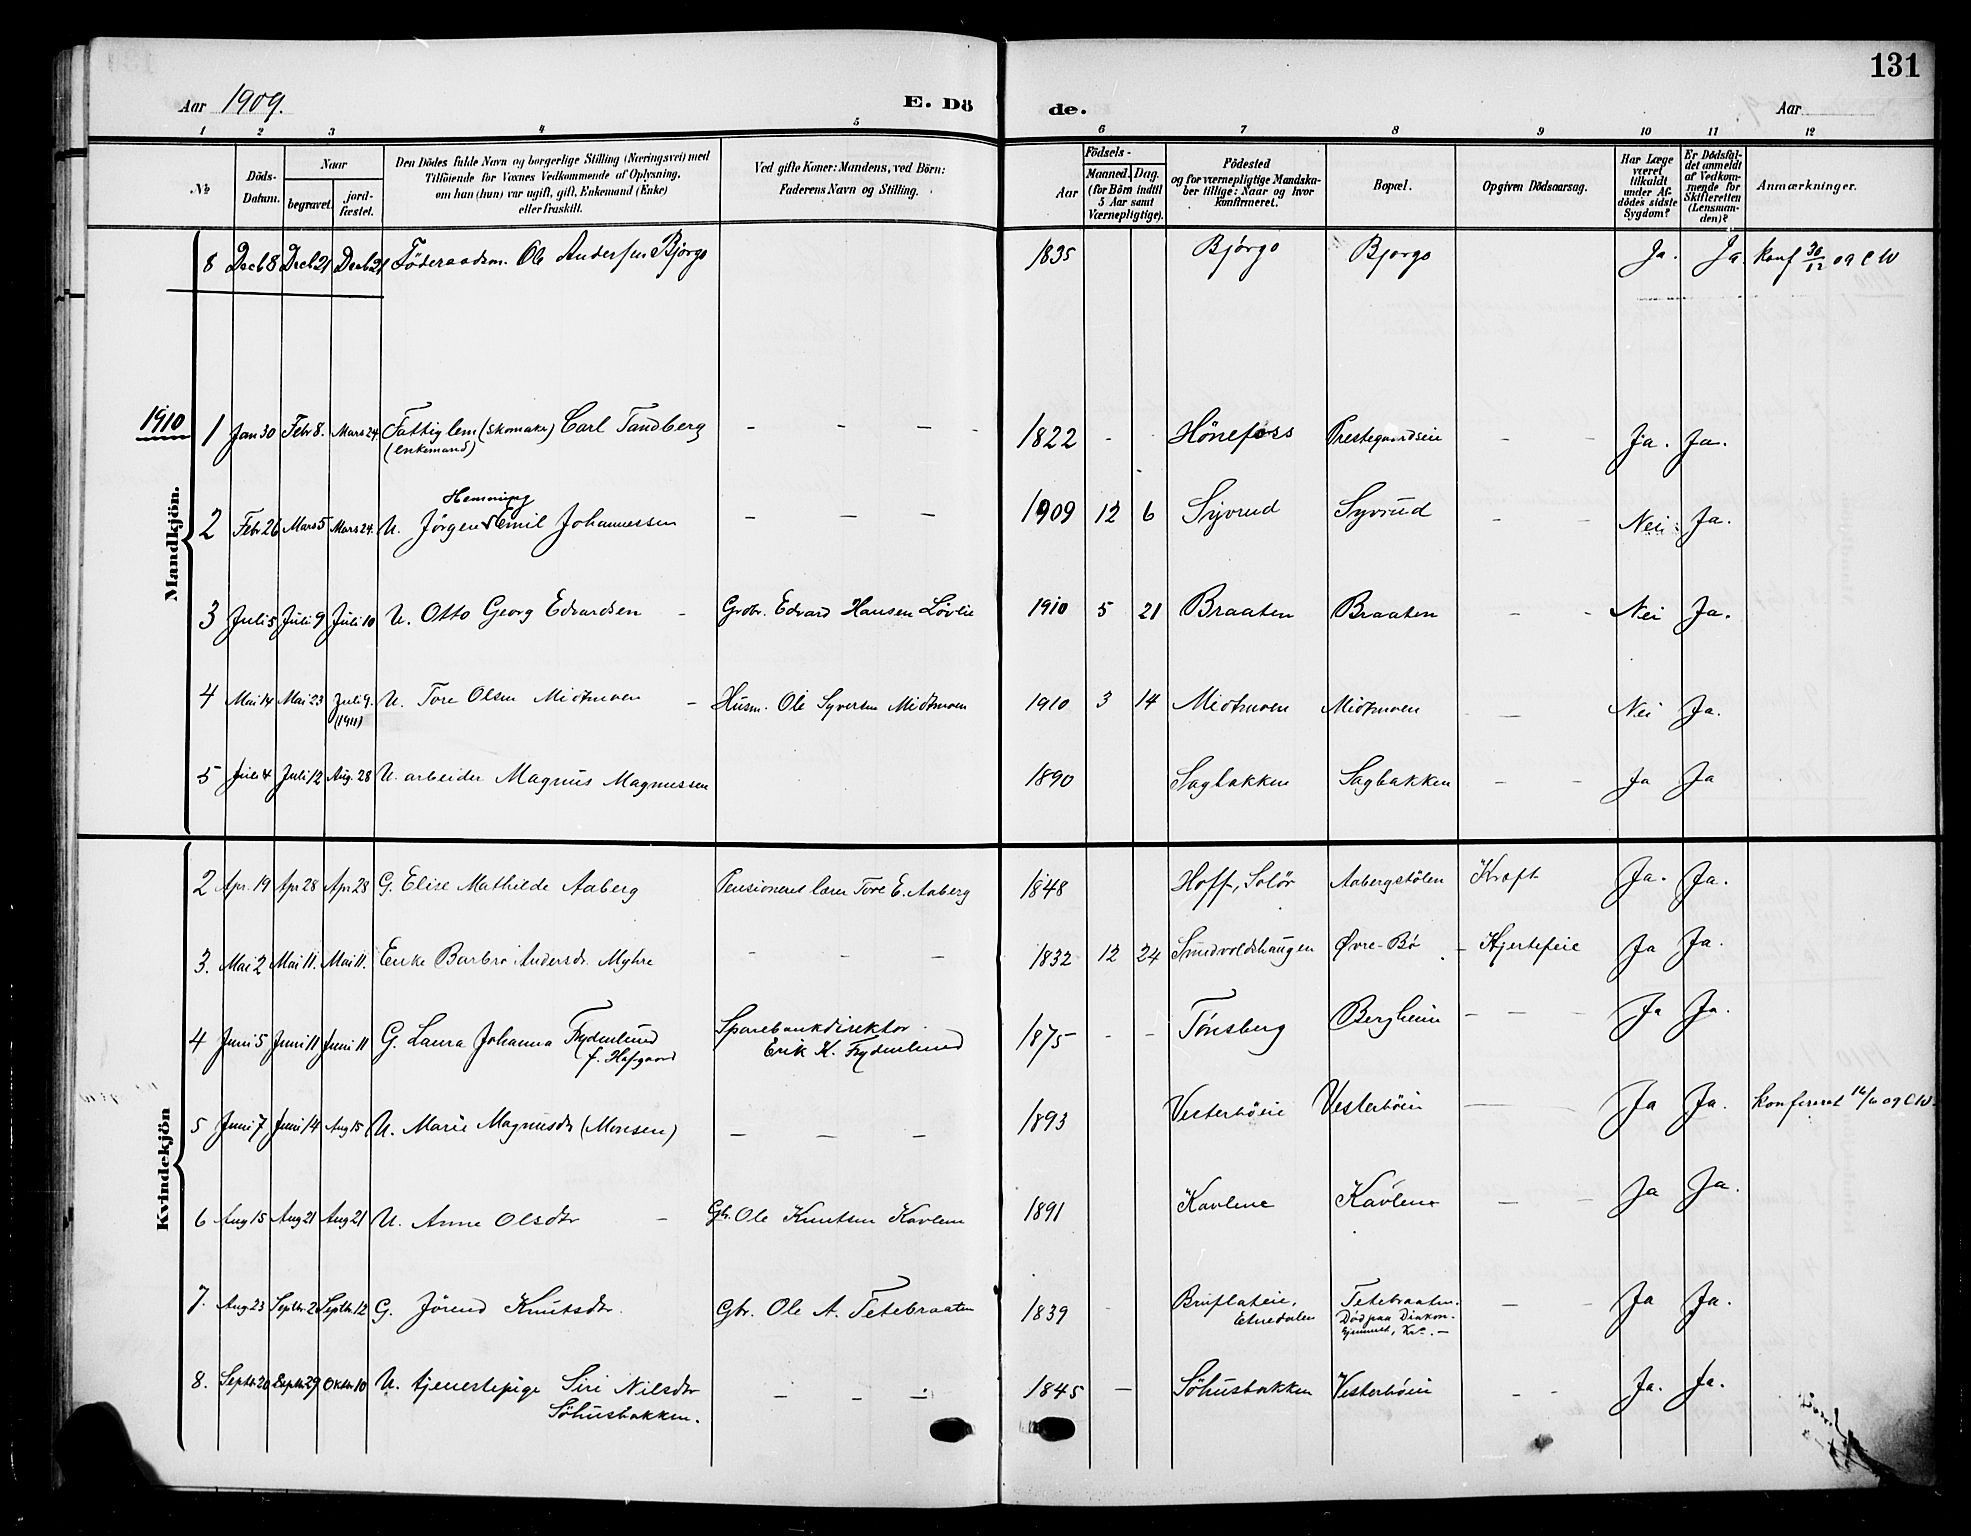 131
Aar 1909. E. Dö de. Aar
1 2 3 4 5 6 7 8 9 10 11 12
№
Döds-
Datum.
Naar
begravet.
jord-
fæstet.
Den Dödes fulde Navn og borgerlige Stilling (Næringsvei) med
Tilföiende for Voxnes Vedkommende af Oplysning,
om han (hun) var ugift, gift, Enkemand (Enke)
eller fraskilt.
Ved gifte Koner: Mandens, ved Börn:
Faderens Navn og Stilling.
Födsels-
Aar
Maaned. Dag.
(for Börn indtil
5 Aar samt
Værnepligtige).
Födested
og for værnepligtige Mandska-
ber tillige: Naar og hvor
konfirmeret.
Bopæl.
Opgiven Dödsaarsag.
Har Læge
været
tilkaldt
under Af-
dödes sidste
Sygdom?
Er Dödsfal-
det anmeldt
af Vedkom-
mende for
Skifteretten
(Lensman-
den)?
Anmærkninger.
8 Decb 8 Decb 21 Decb 21 Föderaadsm. Ole Andersen Bjørgo 1835 Bjørgo Bjorgo Ja. Ja. Konf 30/12 09 C W
1910
Mandkjön.
1 Jan 30 Febr 8. Mars 24. Fattiglem (skomaker) Carl Tandberg – – – – 1822 - - Hönefoss Prestegaardseie - - Ja. Ja.
(enkemand)
Hemming
2 Febr 26 Mars 5 Mars 24. U. Jørgen Emil Johannessen – – – 1909 12 6 Syvrud Syvrud - - Nei Ja.
3 Juli 5 Juli 9 Juli 10 U. Otto Georg Edvardsen – Grdbr. Edvard Hansen Løvlie 1910 5 21 Braaten Braaten - - Nei Ja.
4 Mai 14 Mai 23 Juli 9. U. Tore Olsen Midtmoen – Husm. Ole Syversen Midtmoen 1910 3 14 Midtmoen Midtmoen – Nei Ja.
(1911)
5 Juli 4 Juli 12 Aug. 28 U. arbeider Magnus Magnussen 1890 Sagbakken Sagbakken - - Ja Ja
Kvindekjön
2 Apr. 19 Apr 28 Apr 28 G. Elise Mathilde Aaberg Pensioneret lærer Tore E. Aaberg 1848 Hoff, Solör Aabergstölen Kræft Ja. Ja.
3. Mai 2 Mai 11. Mai 11. Enke Barbro Andersd. Myhre – – – 1832 12 24 Smedvoldshaugen Øvre-Bö - Hjertefeie Ja Ja.
4 Juni 5 Juni 11 Juni 11 G. Laura Johanna Frydenlund Sparebankdirektør 1875 - - Tönsberg Bergheim - - - Ja Ja.
f. Hafgaard Erik K. Frydenlund
5 Juni 7 Juni 14 Aug 15 U. Marie Magnusdtr (Monsen) – – – 1893 Vesterböeie Vesterböeie – - Ja Ja. konfereret 16/11 09 C W.
6 Aug 15 Aug 21 Aug 21 U. Anne Olsdtr – Gbr. Ole Knutsen Kavlene 1891 Kavlene Kavlene – - Ja Ja.
7. Aug 23 Septbr. 2 Septbr. 12 G. Jörend Knutsdtr. Gbr. Ole A. Tetebraaten 1839 Bruflateie, Tetebraaten. – - Ja Ja.
Etnedalen Död paa Diakon-
hjemmet, Kr.a. –
8. Septbr 20 Septbr 29 Oktbr 10 U. tjenestepige Siri Nilsdtr – – – 1845 – Söhusbakken Vesterböeie - - Ja. Ja.
Söhusbakken.